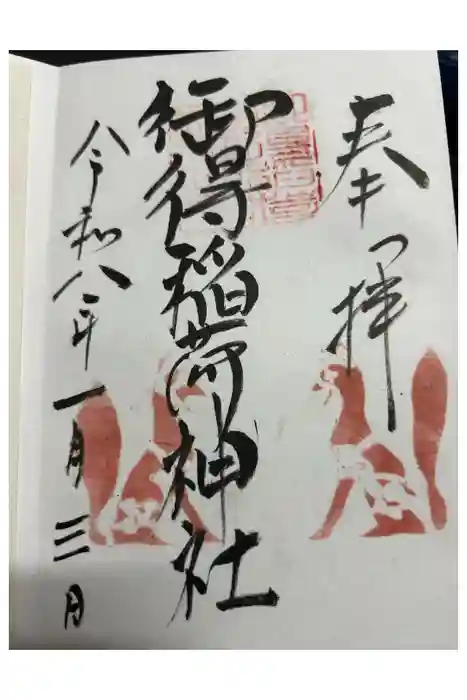 奉拝
御得稲荷神社
令和八年一月三月